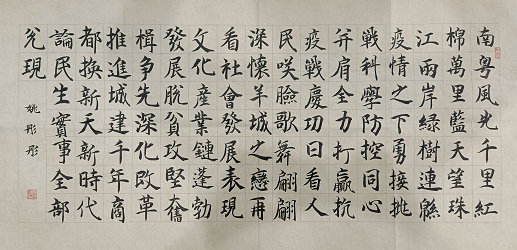 南粤風光千里紅
棉萬里藍天望珠
江兩岸綠樹連緜
疫情之下勇接挑
戰科學防控同心
并肩全力打贏抗
疫戰慶功日看人
民咲臉歌舞翩翩
深懷羊城之戀再
看社會發展表現
文化產業鏈蓬勃
發展脫貧攻堅奮
楫争先深化改革
推進城建千年商
都換新天新時代
論民生實事全部
兌現
姚彤彤